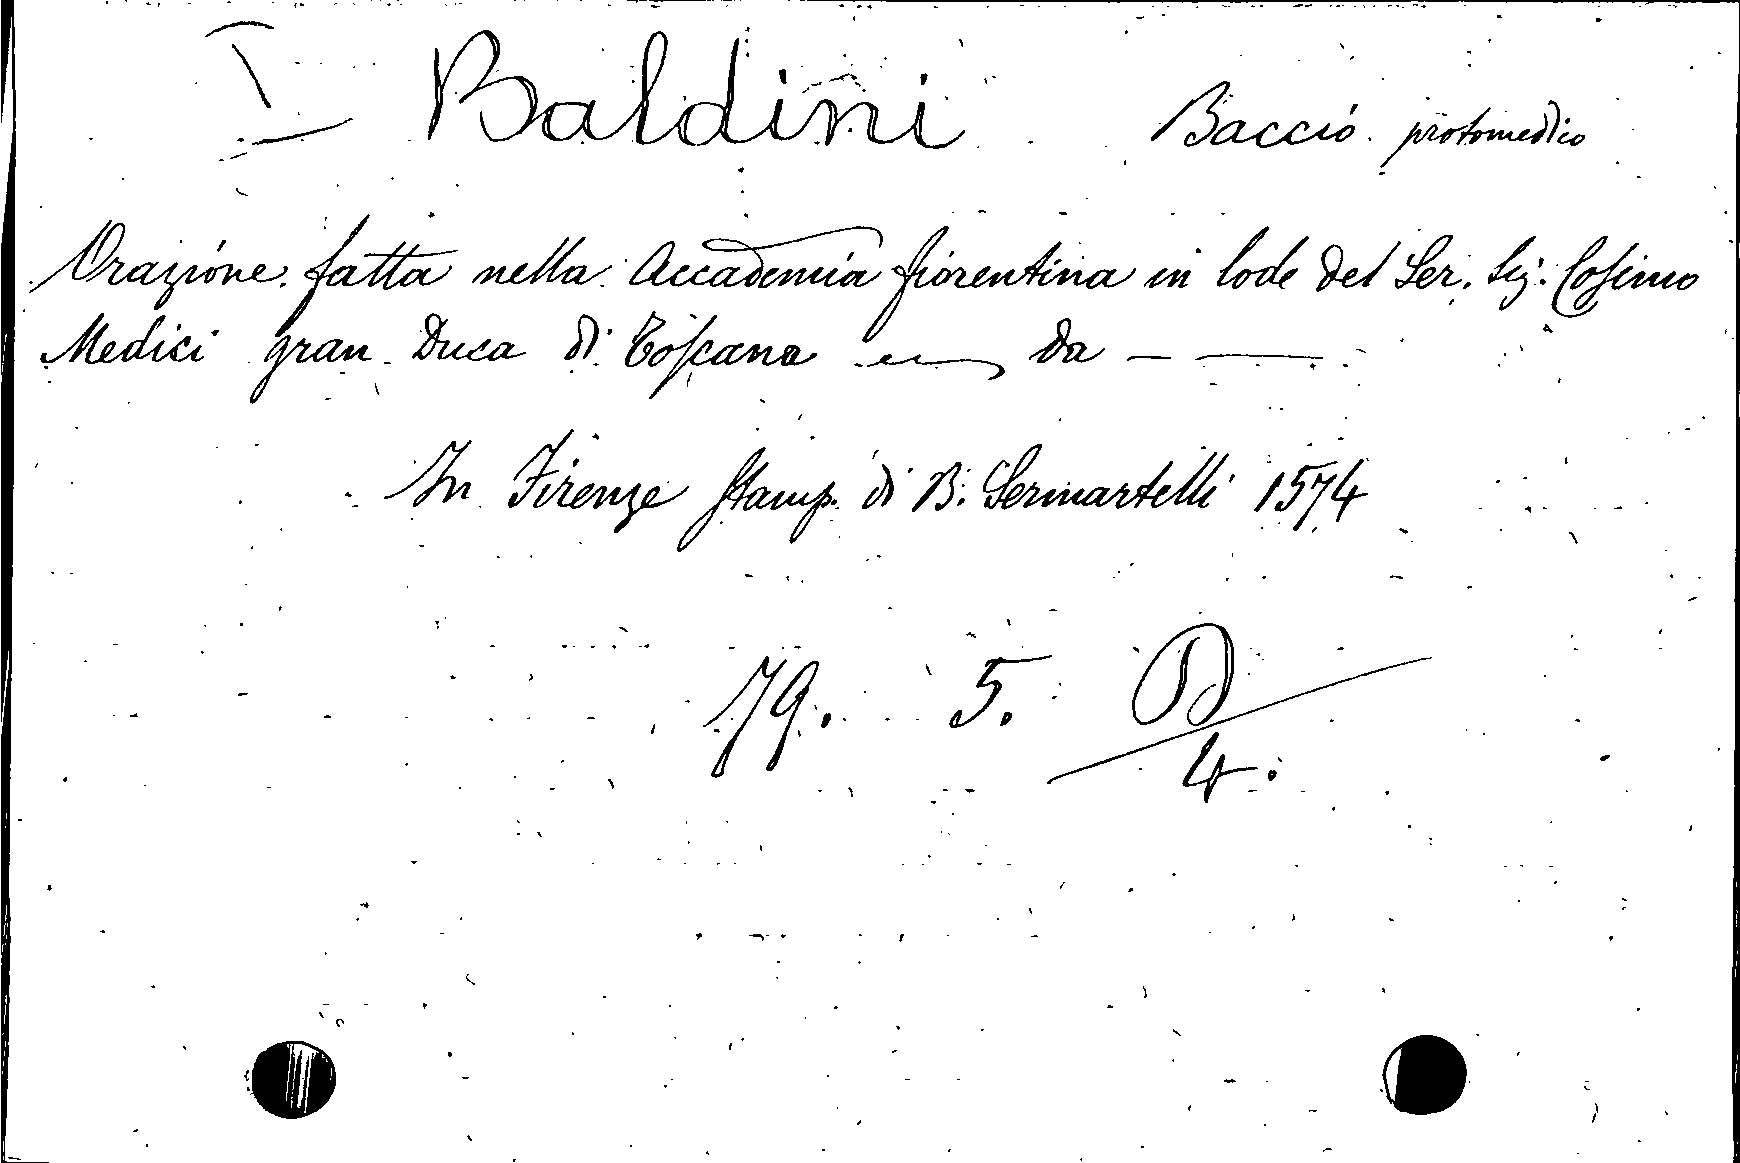 I Baldini Baccio protomedico
Orazione fatta nella Accademia fiorentina in lode del Ser. Sig. Cosimo
Medici gran Duca di Toscana — da — —
In Firenze Stamp. di B. Sermartelli 1574
79. 5. D/4.